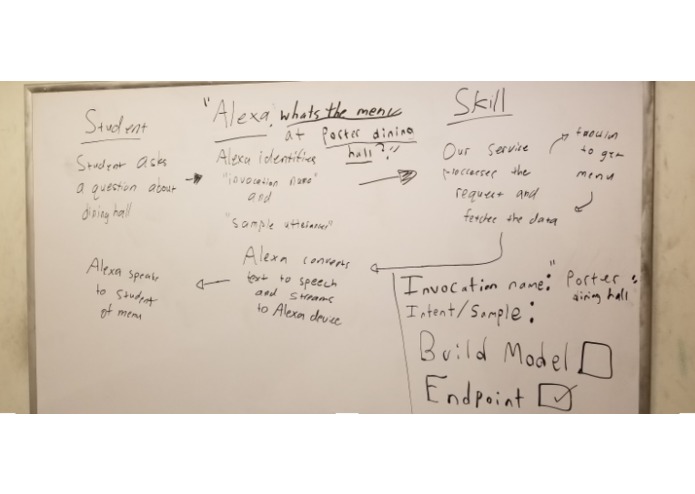 Student
Student asks
a question about
dining hall
"Alexa, whats the menu
at Porter dining
hall?"
Alexa identifies
"invocation name"
and
"sample utterances"
Skill
Our service
processes the
request and
fetches the data
function
to get
menu
Alexa converts
text to speech
and streams
to Alexa device
Alexa speaks
to student
of menu
Invocation name: "Porter
dining hall"
Intent/Sample:
Build Model
Endpoint